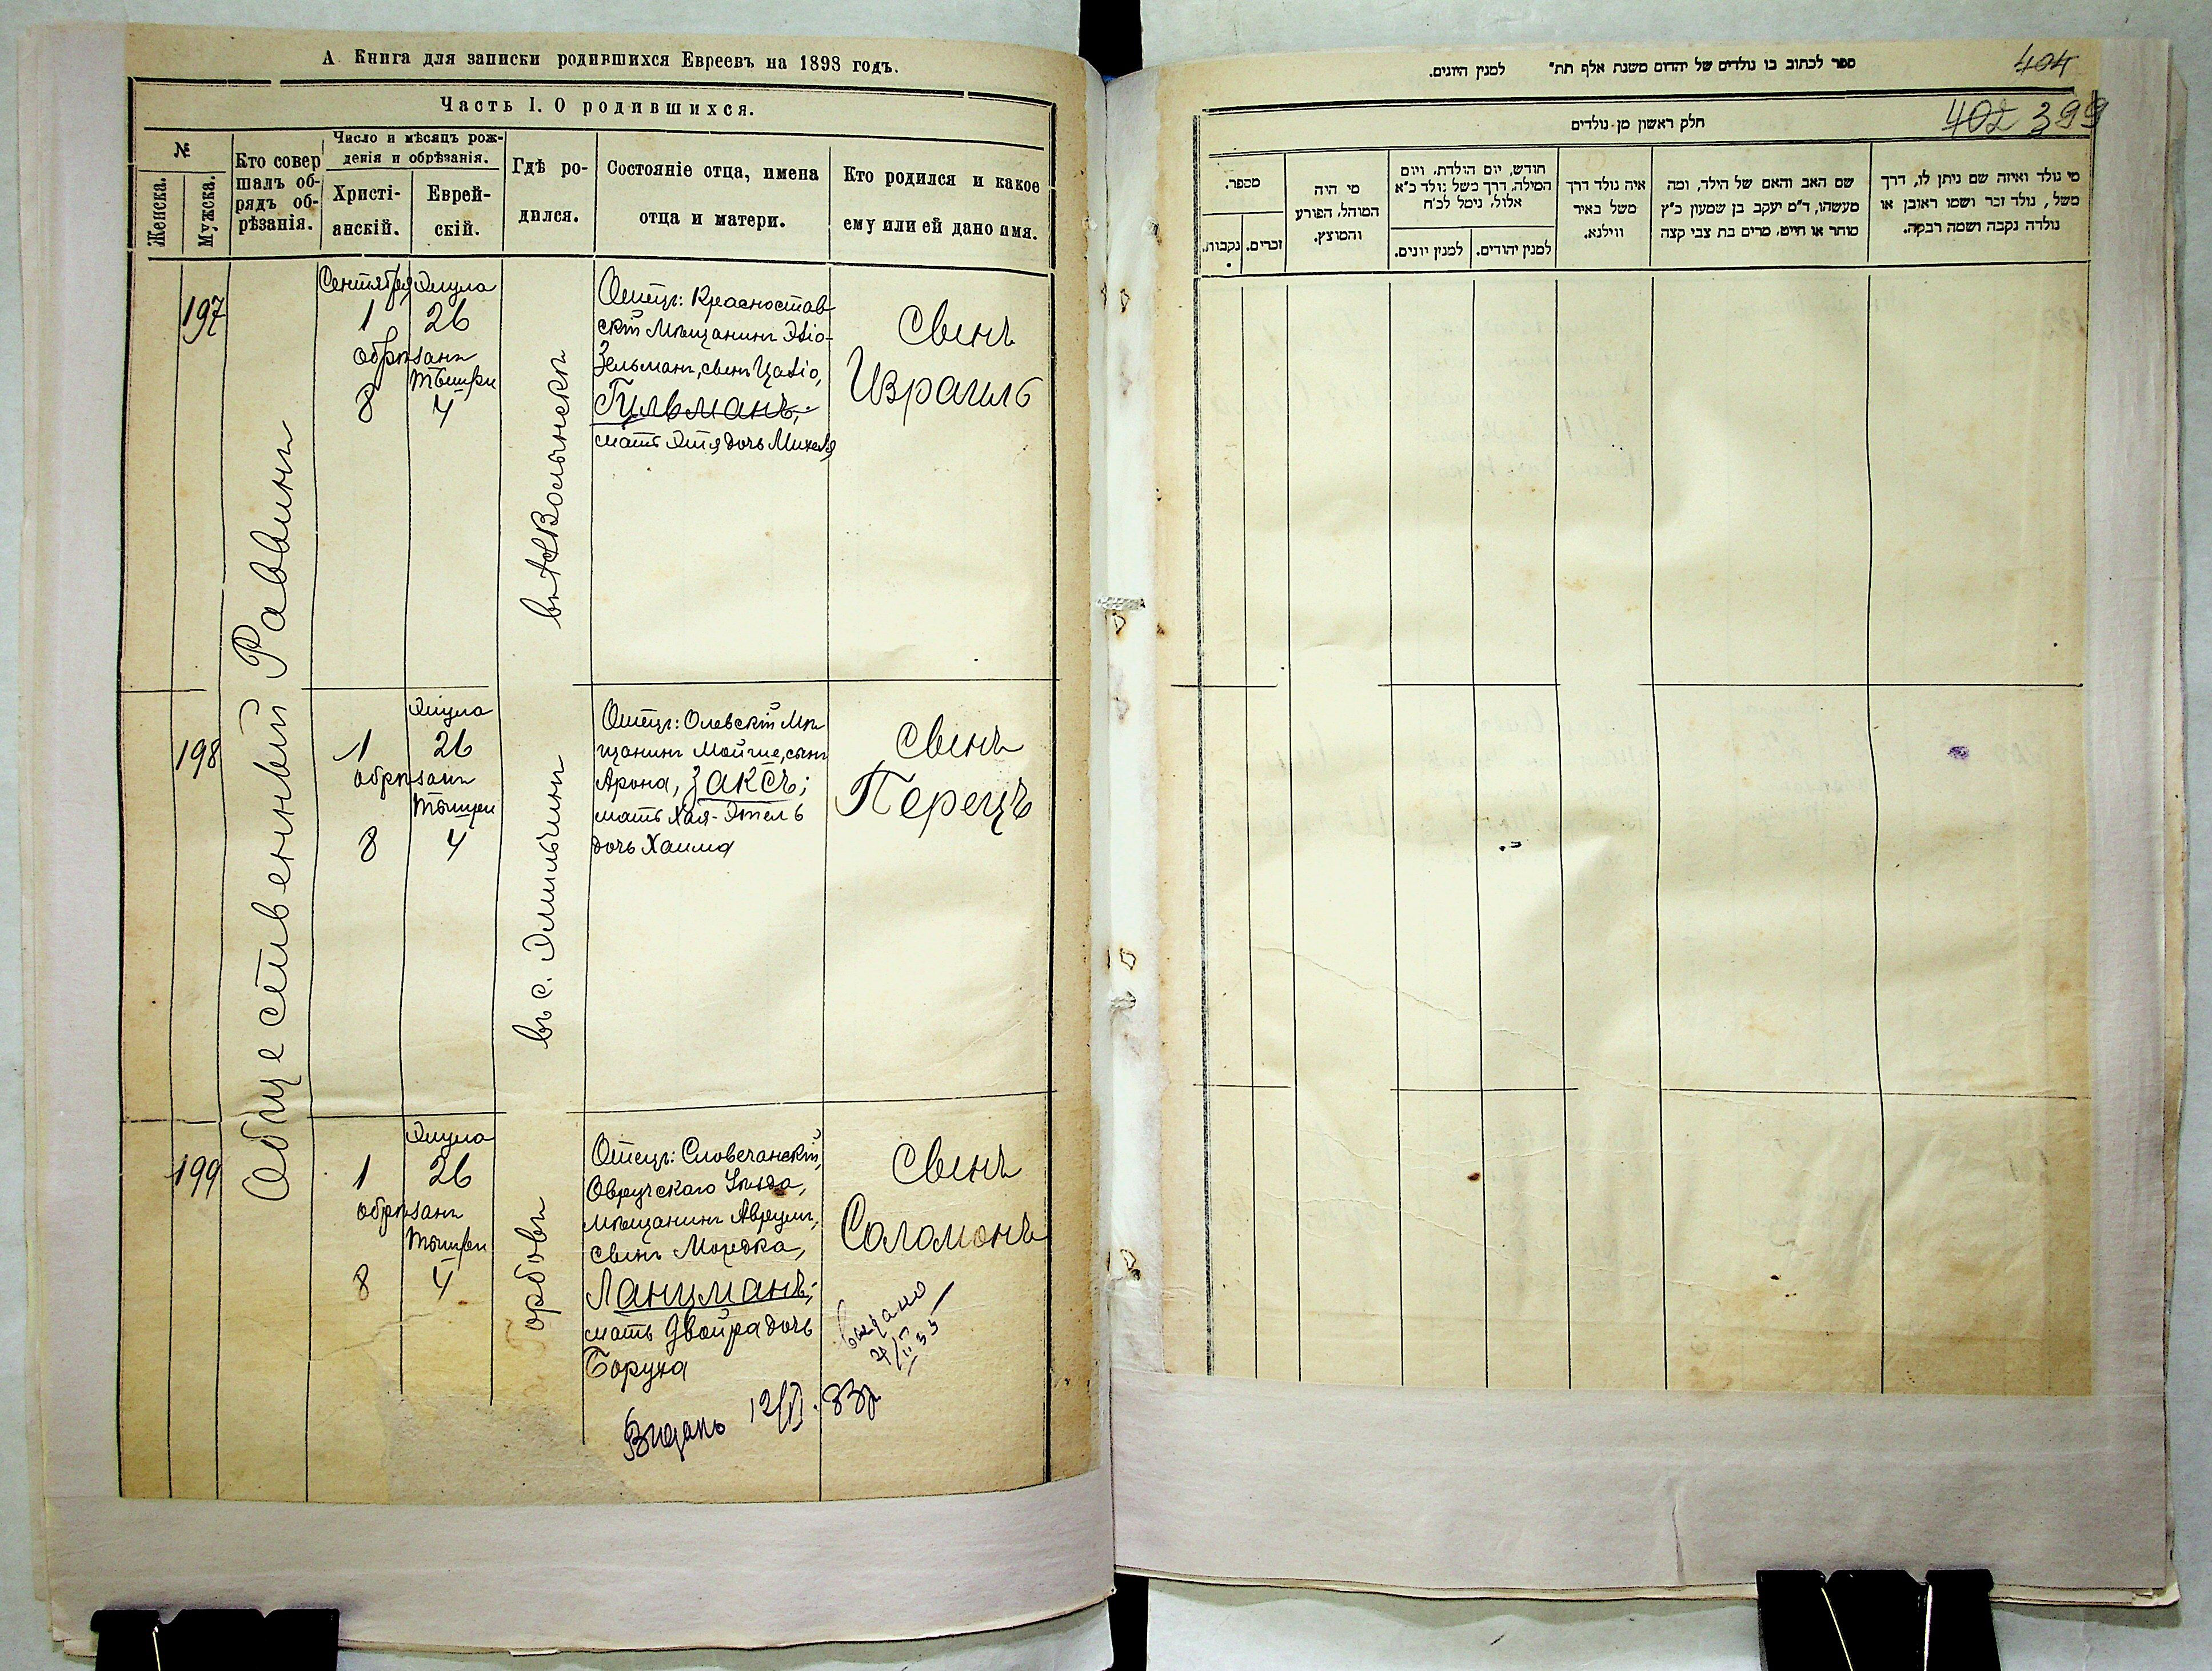 А. Книга для записки родившихся Евреевъ на 1898 годъ.
Часть I. О родившихся.
№
Женска.
Мужска.
Кто совер
шалъ об-
рядъ об-
рѣзанія.
Число и мѣсяцъ рож-
денія и обрѣзанія.
Христі-
анскій.
Еврей-
скій.
Гдѣ ро-
дился.
Состояніе отца, имена
отца и матери.
Кто родился и какое
ему или ей дано имя.
Общественный Раввинъ
197
Сентября
1
Элула
26
обрѣзанъ
Тышри
8
4
Отецъ: Красностав-
скій Мѣщанинъ
Зельманъ, сынъ
Гульманъ;
мать Этя дочь Михеля
сынъ
Израиль
198
Элула
1
26
обрѣзанъ
Тышри
8
4
въ с. Эмильчинъ
Отецъ: Олевскій Мѣ
щанинъ Мойше, сынъ
Арона, Заксъ;
мать Хая-Этель
дочь Хаима
сынъ
Перецъ
199
Элула
1
26
обрѣзанъ
Тышри
8
4
Отецъ: Словечанскій,
Овручскаго Уѣзда,
мѣщанинъ Аврумъ,
сынъ Мордка,
Ланцманъ;
мать Двойра дочь
Боруха
сынъ
Соломонъ
выдано
Видань 12/VI. 33р
ספר לכתוב בו נולדים של יהדום משנת אלף תת״ למנין היונים.
404
402 399
חלק ראשון מן נולדים
מי נולד ואיזה שם ניתן לו, דרך
משל, נולד זכר ושמו ראובן או
נולדה נקבה ושמה רבקה.
שם האב והאם של הילד, ומה
מעשהו, ד״מ יעקב בן שמעון כ״ץ
סוחר או חייט, מרים בת צבי קצה
איה נולד דרך
משל באיר
ווילנא.
חודש, יום הולדת, ויום
המילה, דרך משל נולד כ״א
אלול, נימל לכ״ח
למנין יהודים.
למנין יונים.
מי היה
המוהל, הפורע
והמוצץ.
מספר.
זכרים.
נקבות.